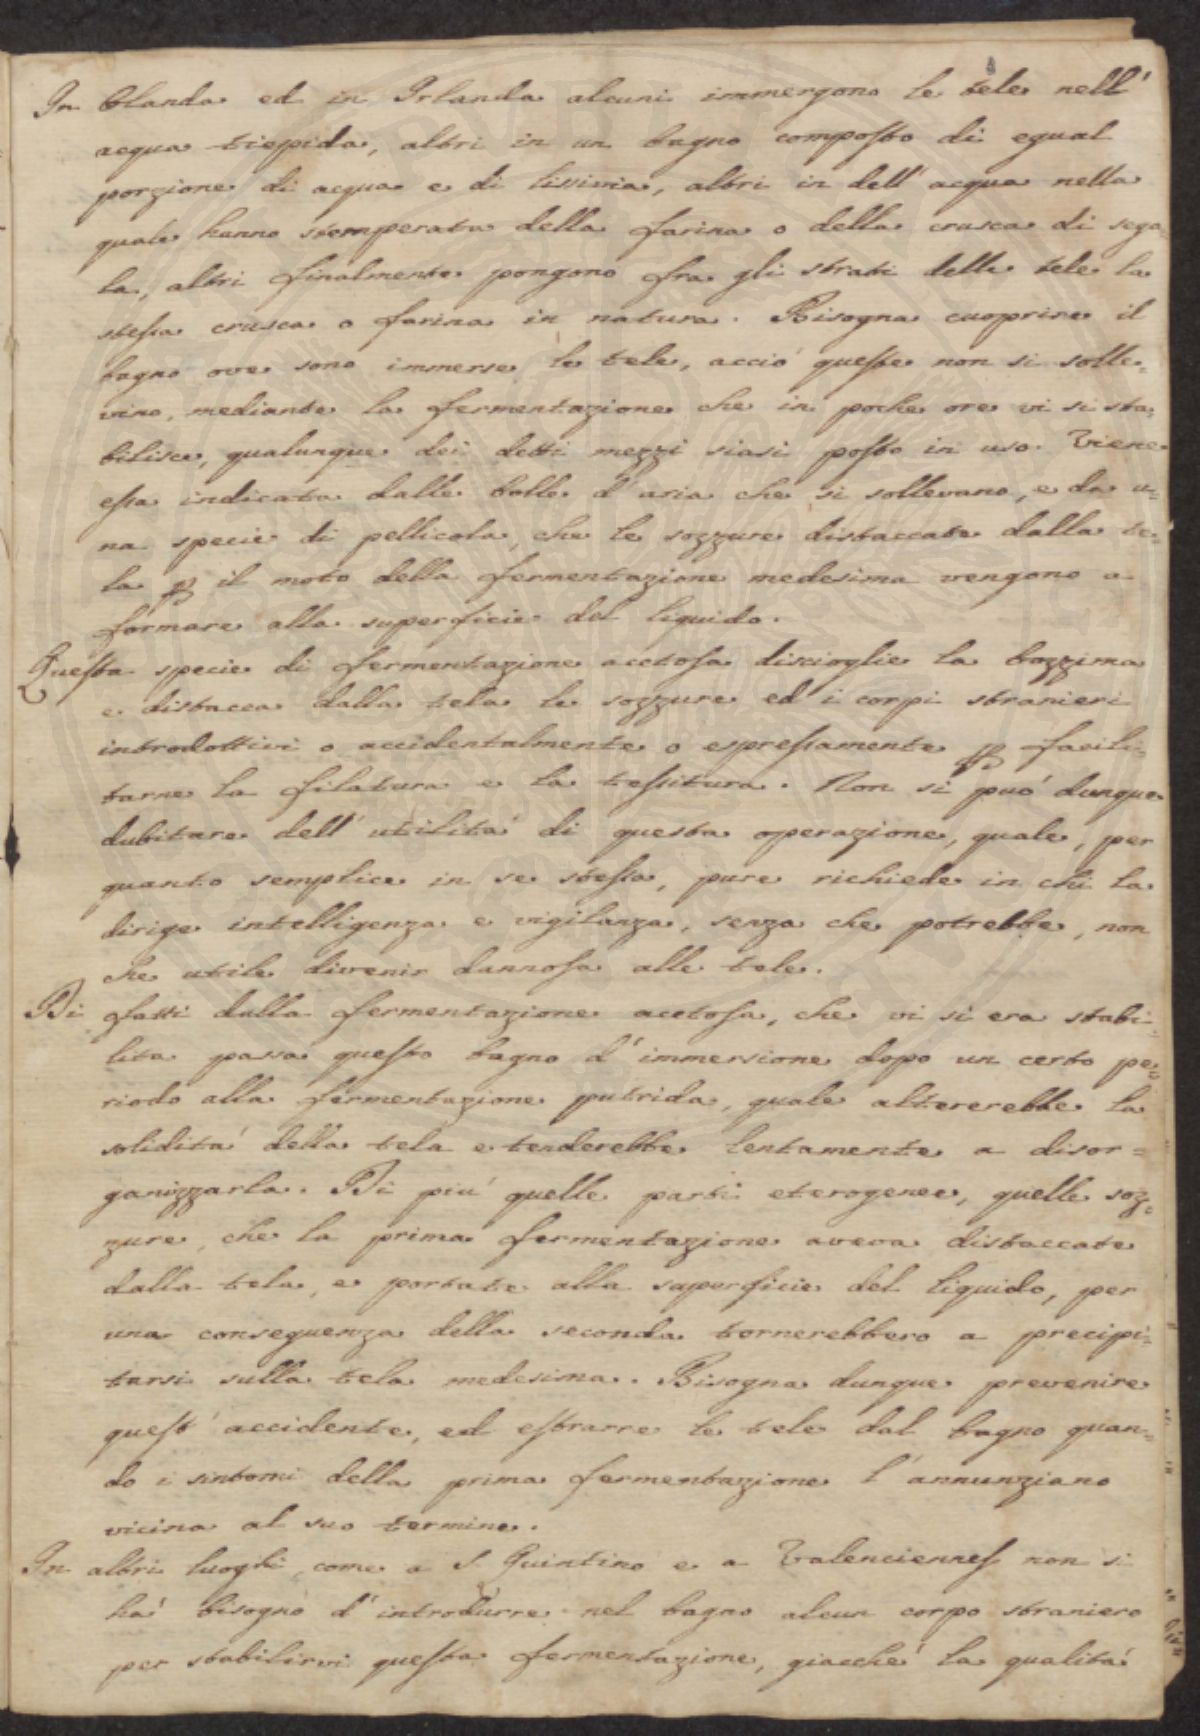 In Olanda ed in Irlanda alcuni immergono le tele nell'
acqua tiepida, altri in un bagno composto di egual
porzione di acqua e di lissivia, altri in dell'acqua nella
quale hanno stemperata della farina o della crusca di sega-
la, altri finalmente pongono fra gli strati delle tele la
stessa crusca o farina in natura. Bisogna cuoprire il
bagno ove sono immerse le tele, acció queste non si solle-
vino, mediante la fermentazione che in poche ore vi si sta-
bilisce, qualunque dei detti mezzi siasi posto in uso. Viene
essa indicata dalle bolle d'aria che si sollevano, e da u-
na specie di pellicola, che le sozzure distaccate dalla te-
la ꝑ il moto della fermentazione medesima vengono a
formare alla superficie del liquido.
Questa specie di fermentazione acetosa discioglie la bozzima
e distacca dalla tela le sozzure ed i corpi stranieri
introdottivi o accidentalmente o espressamente ꝑ facili-
tarne la filatura e la tessitura. Non si puó dunque
dubitare dell'utilitá di questa operazione, quale, per
quanto semplice in se stessa, pure richiede in chi la
dirige intelligenza e vigilanza, senza che potrebbe, non
che utile divenir dannosa alle tele.
Di fatti dalla fermentazione acetosa, che vi si era stabi-
lita passa questo bagno d'immersione dopo un certo pe-
riodo alla fermentazione putrida, quale altererebbe la
soliditá della tela e tenderebbe lentamente a disor-
ganizzarla. Di piú quelle parti eterogenee, quelle soz-
zure, che la prima fermentazione aveva distaccate
dalla tela, e portate alla superficie del liquido, per
una conseguenza della seconda tornerebbero a precipi-
tarsi sulla tela medesima. Bisogna dunque prevenire
quest'accidente, ed estrarre le tele dal bagno quan-
do i sintomi della prima fermentazione l'annunziano
vicina al suo termine.
In altri luoghi, come a S. Quintino e a Valenciennes non si
há bisogno d'introdurre nel bagno alcun corpo straniero
per stabilirvi questa fermentazione, giacché la qualitá